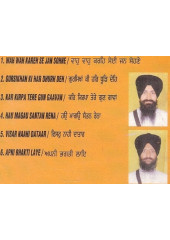 1. WAH WAH KAREH SE JAN SOHNE / ਵਾਹੁ ਵਾਹੁ ਕਰਹਿ ਸੇਈ ਜਨ ਸੋਹਣੇ
2. GURSIKHAN KI HAR DHURH DEH / ਗੁਰਸਿਖਾਂ ਕੀ ਹਰਿ ਧੂੜਿ ਦੇਹਿ
3. KAR KIRPA TERE GUN GAAVAN / ਕਰਿ ਕਿਰਪਾ ਤੇਰੇ ਗੁਣ ਗਾਵਾ
4. HAO MAGAU SANTAN RENA / ਹਉ ਮਾਗਉ ਸੰਤਨ ਰੇਨਾ
5. VISAR NAAHI DATAAR / ਵਿਸਰੁ ਨਾਹੀ ਦਾਤਾਰ
6. APNI BHAKTI LAYE / ਅਪਨੀ ਭਗਤੀ ਲਾਇ